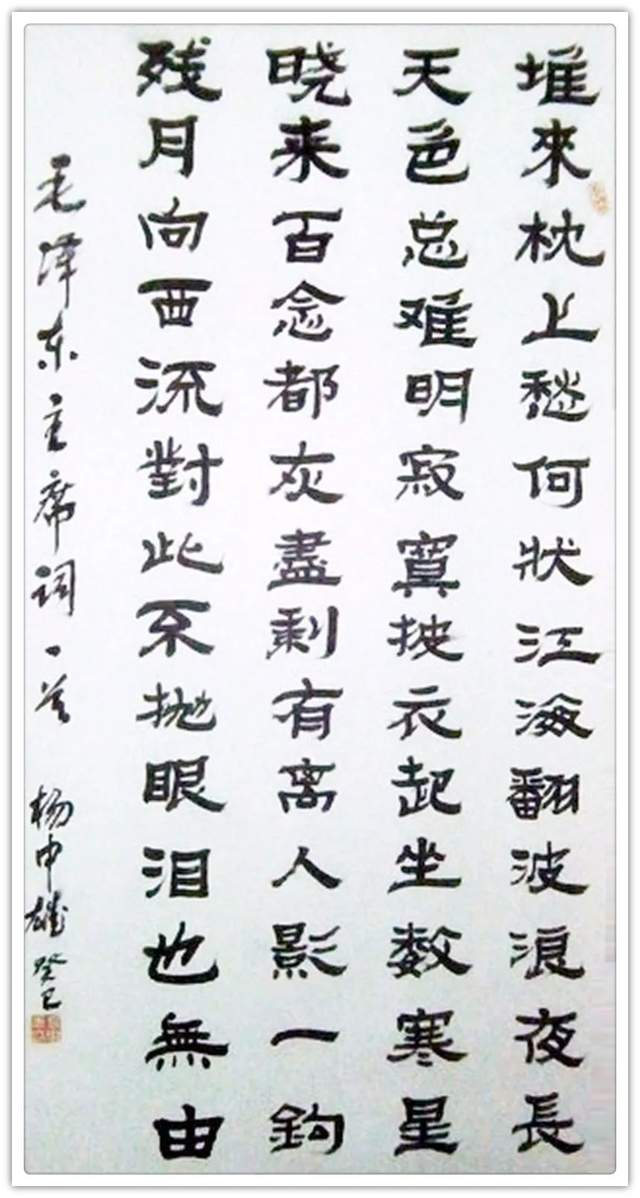 堆來枕上愁何状江海翻波浪夜長
天色总难明寂寞披衣起坐数寒星
晓来百念都灰盡剩有离人影一鈎
残月向西流對此不抛眼泪也無由
毛泽东主席词一首 杨中雄癸巳